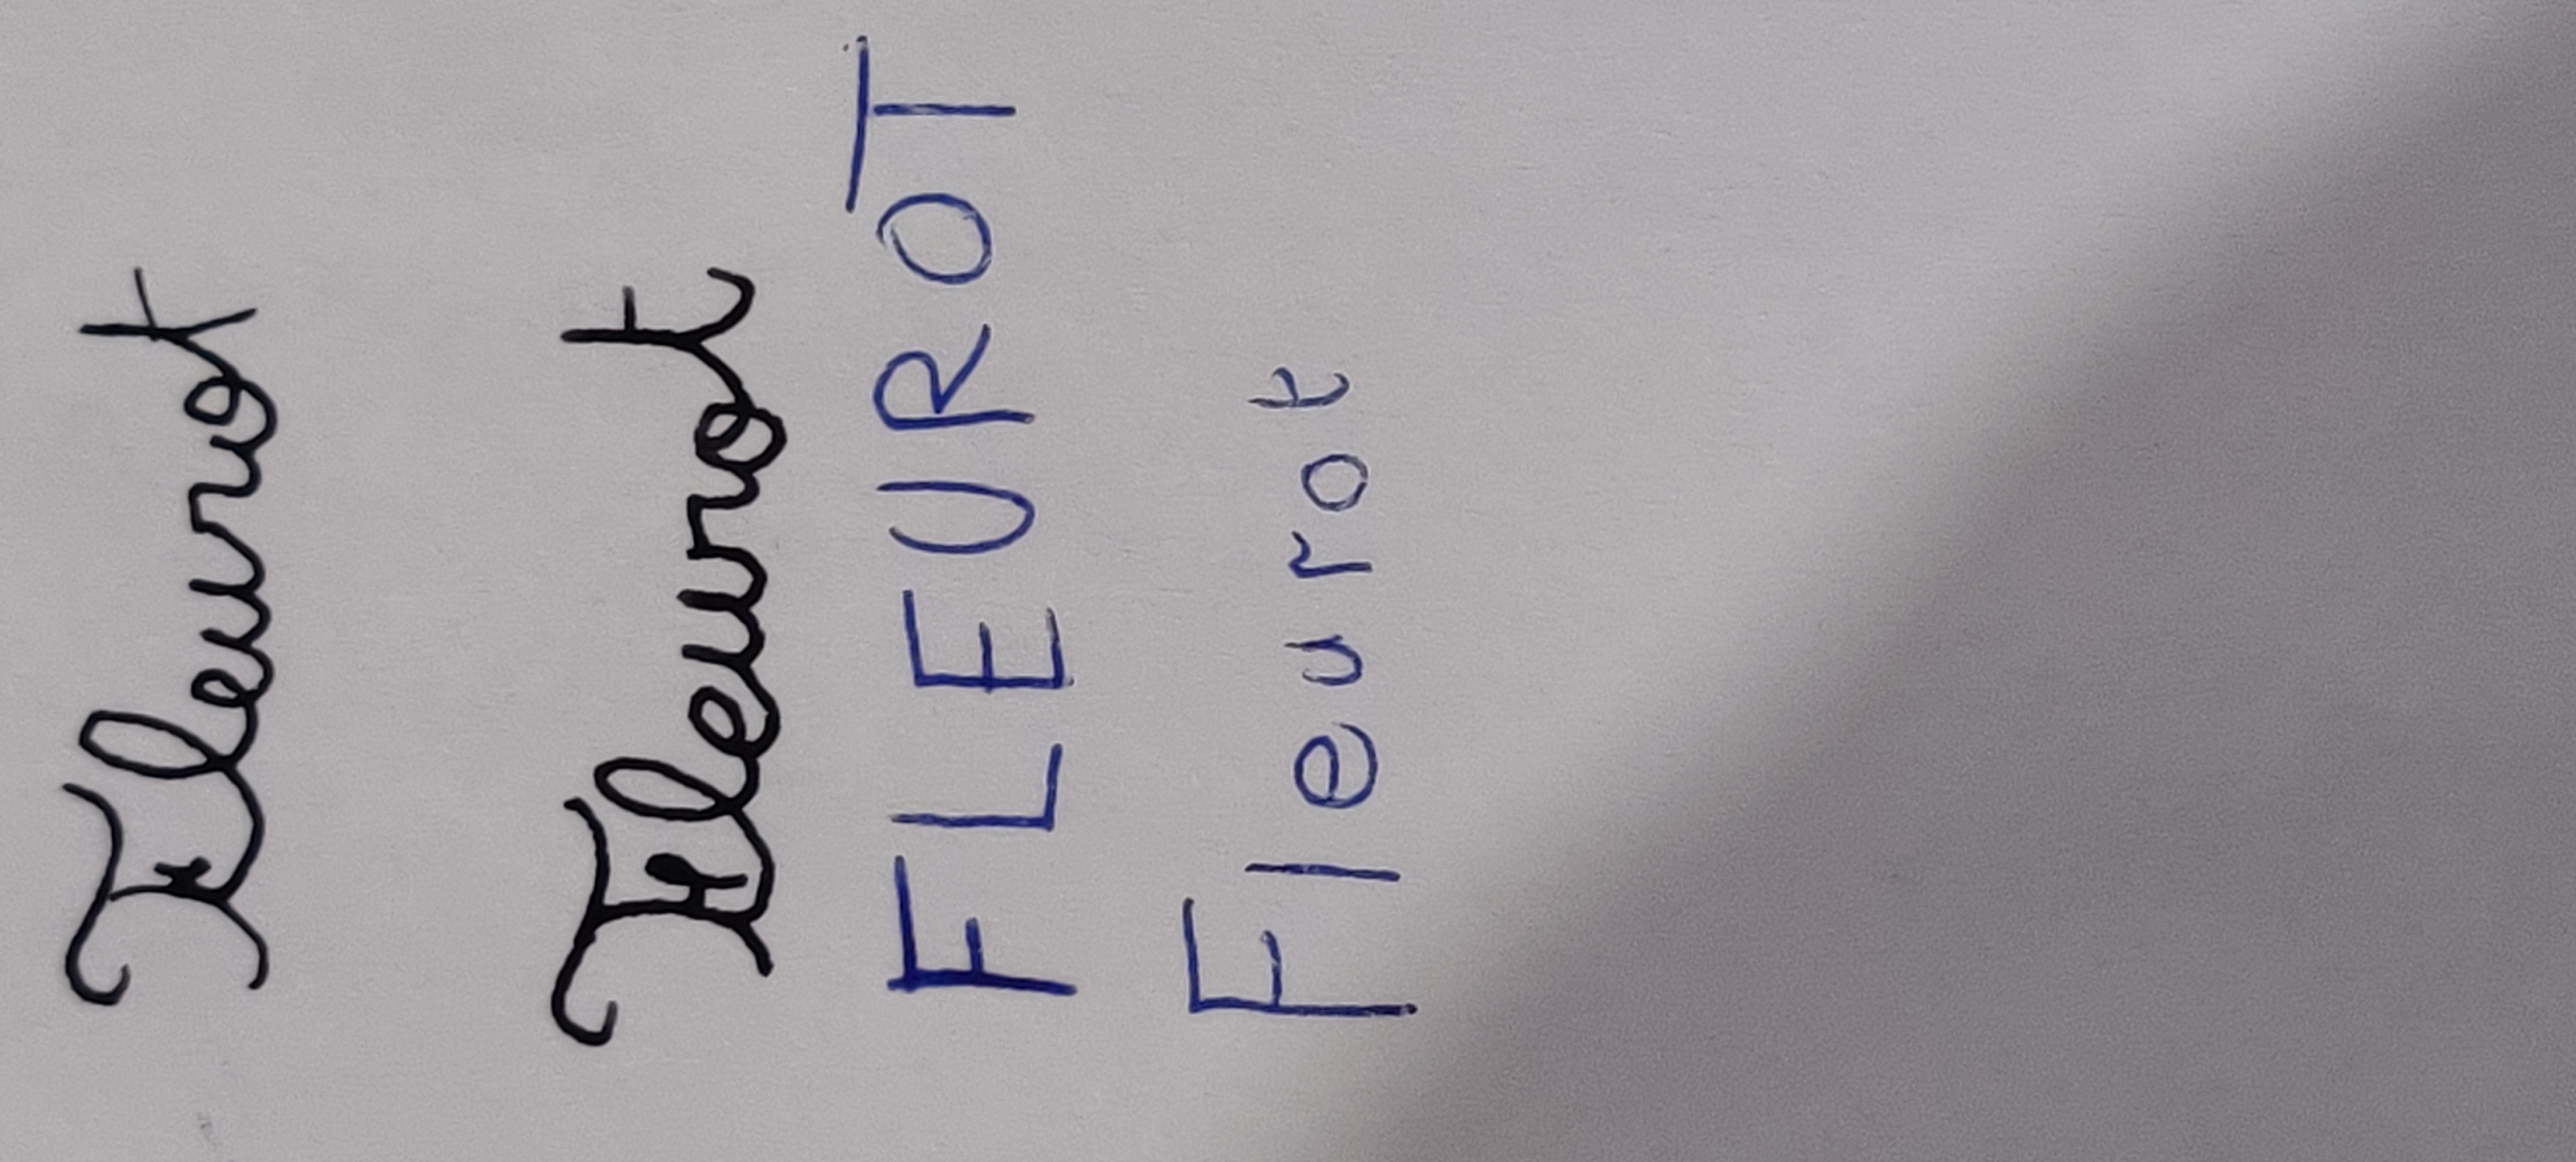 Fleurot
Fleurot
FLEUROT
Fleurot